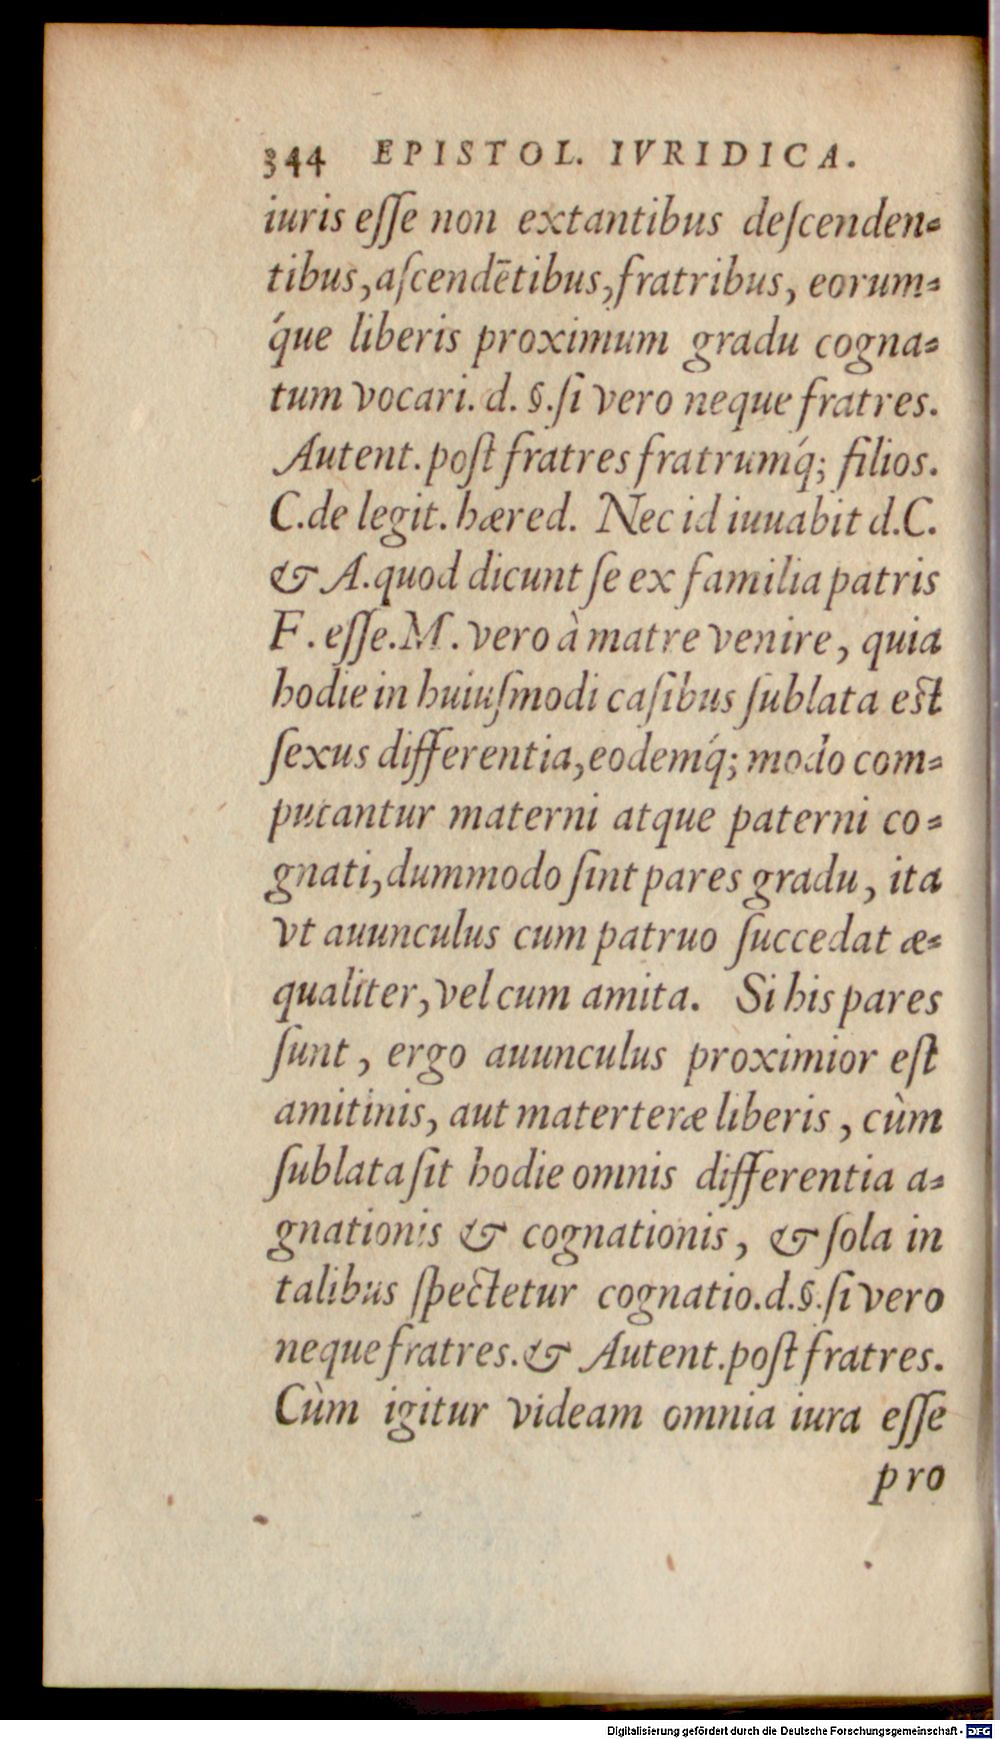 344 EPISTOL. IVRIDICA.
iuris eſſe non extantibus deſcenden-
tibus, aſcendētibus, fratribus, eorum-
q́ue liberis proximum gradu cogna-
tum vocari. d. §. ſi vero neque fratres.
Autent. poſt fratres fratrumq́; filios.
C. de legit. hæred. Nec id iuuabit d. C.
& A. quod dicunt ſe ex familia patris
F. eſſe. M. vero à matre venire, quia
hodie in huiuſmodi caſibus ſublata eſt
ſexus differentia, eodemq́; modo com-
putantur materni atque paterni co-
gnati, dummodo ſint pares gradu, ita
vt auunculus cum patruo ſuccedat æ-
qualiter, vel cum amita. Si his pares
ſunt, ergo auunculus proximior eſt
amitinis, aut materteræ liberis, cùm
ſublata ſit hodie omnis differentia a-
gnationis & cognationis, & ſola in
talibus ſpectetur cognatio. d. §. ſi vero
neque fratres. & Autent. poſt fratres.
Cùm igitur videam omnia iura eſſe
pro
Digitalisierung gefördert durch die Deutsche Forschungsgemeinschaft - DFG